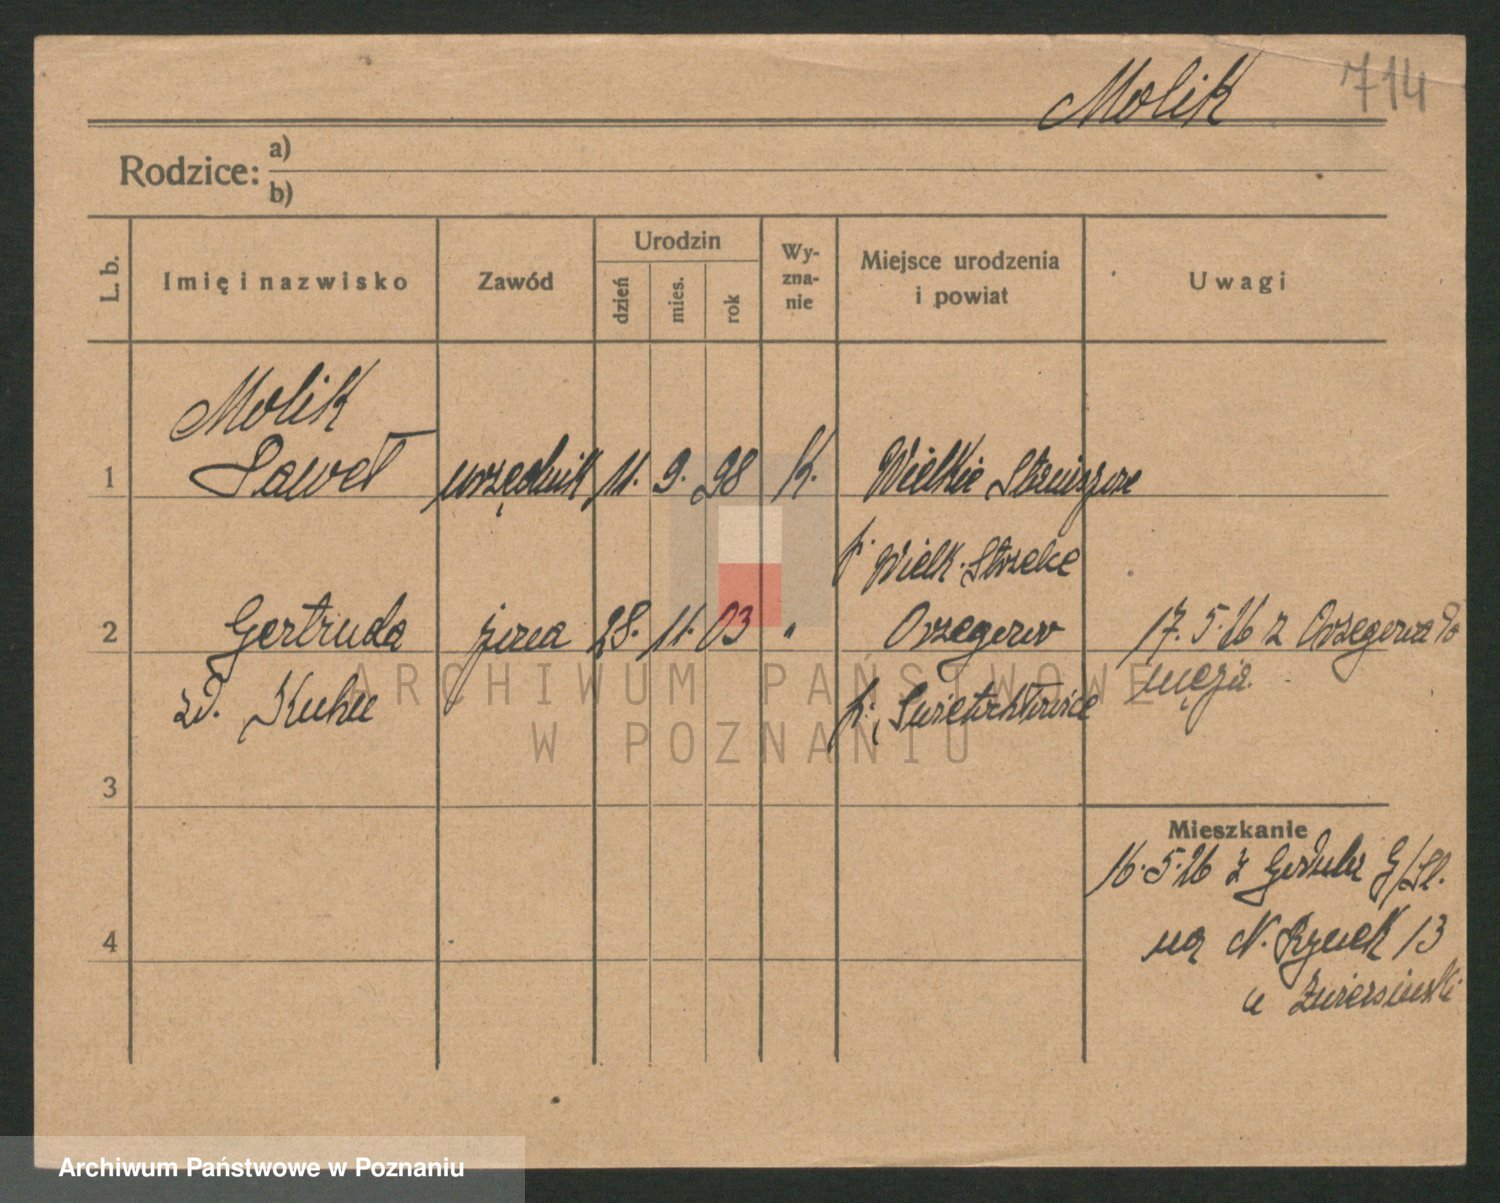 Molik 714
Rodzice: a)
b)
L. b. Imię i nazwisko Zawód Urodzin dzień mies. rok Wy-zna-nie Miejsce urodzenia i powiat Uwagi
Molik
1 Paweł urzędnik 11. 9. 98 k. Wielkie
p. Wielk. Strzelce
2 Gertruda żona 28. 11. 03 " Orzegow 17. 5. 26 z Orzegowa do
męża.
zd. Kuhn p. Świętochłowice
ARCHIWUM PAŃSTWOWE
W POZNANIU
3
Mieszkanie
16. 5. 26 z G/Śl.
4 na N. Rynek 13
u
Archiwum Państwowe w Poznaniu